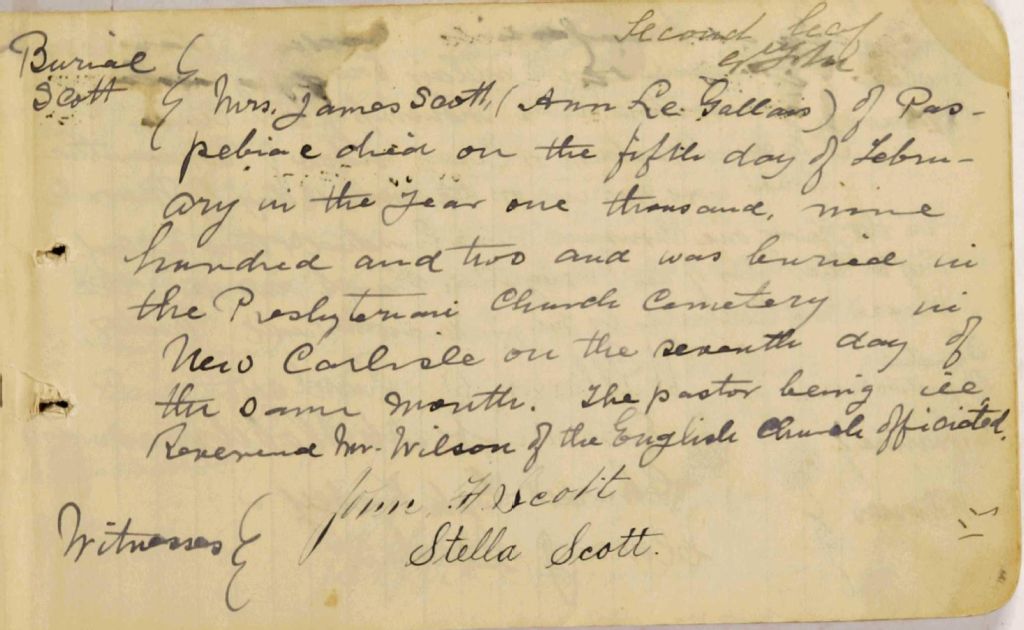 Second leaf
Burial
Scott
Mrs. James Scott, (Ann Le Gallais) of Pas-
pebiac died on the fifth day of Febru-
ary in the Year one thousand, nine
hundred and two and was buried in
the Presbyterian Church Cemetery in
New Carlisle on the seventh day of
the same month. The pastor being ill
Reverend Mr. Wilson of the English Church officiated.
Witnesses
Scott
Stella Scott.